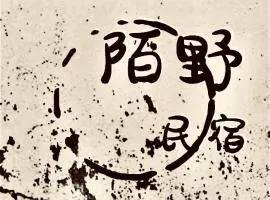 陌野
民宿